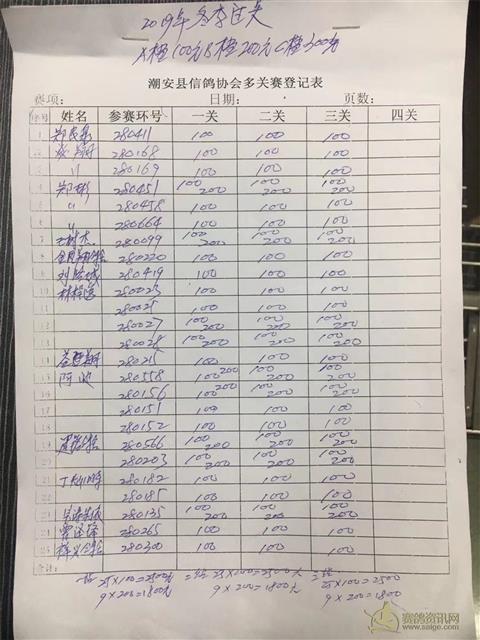 2019年冬季四关
A组100元B组200元C组300元
潮安县信鸽协会多关赛登记表
赛项： 日期： 页数：
序号 姓名 参赛环号 一关 二关 三关 四关
1 280411 100 100 100
2 280168 100 100 100
3 〃 280169 100 100 100
4 郑彬 280451 100 200 100 200 100 200
5 〃 280458 100 100 100
6 〃 280664 100 100 100
7 280099 100 200 100 200 100 200
8 280220 100 100 100
9 280419 100 100 100
10 280023 100 100 100
11 280025 100 100 100
12 280027 100 200 100 200 100 200
13 280028 100 200 100 200 100 200
14 280215 100 100 100
15 阿波 280558 100 200 100 200 100 200
16 280156 100 200 100 200 100 200
17 280151 100 100 100
18 280152 100 100 100
19 280566 100 200 100 200 100 200
20 280203 100 200 100 200 100 200
21 280182 100 100 100
22 280185 100 100 100
23 280135 100 200 100 200 100 200
24 280265 100 100 100
25 280300 100 100 100
合计：
一站 25×100=2500元 二站 25×100=2500元 三站 25×100=2500
9×200=1800元 9×200=1800元 9×200=1800
赛鸽资讯网
www.saige.com